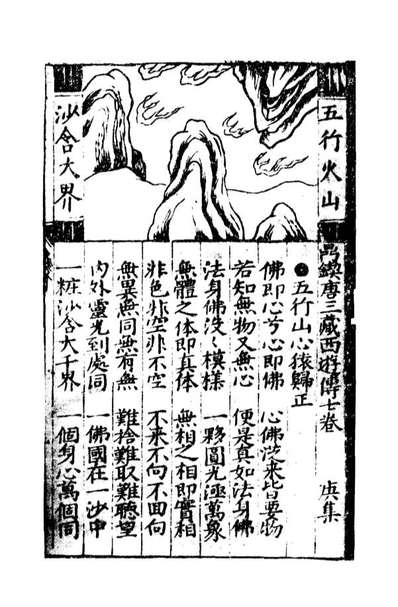 五行火山
沙含大界
唐三藏西遊傳七卷 庚集
●五行山心猿歸正
佛即心兮心即佛 心佛從來皆要物
若知無物又無心 便是真如法身佛
法身佛沒模樣 一夥圓光涵萬象
無體之体即真体 無相之相即實相
非色非空非不空 不來不向不回向
無異無同無有無 難捨難取難聽望
內外靈光到處同 一佛國在一沙中
一粒沙含大千界 一個身心萬個同